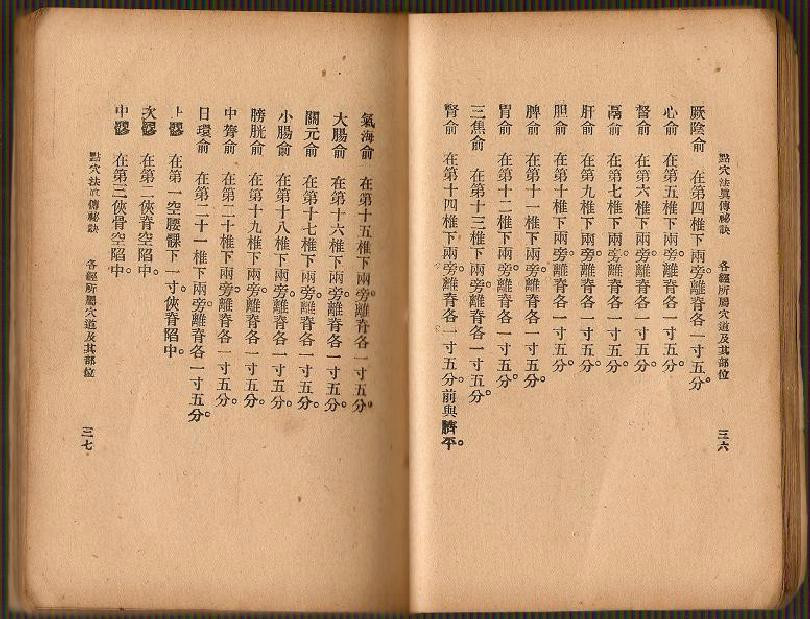 點穴法眞傳祕訣　各經所屬穴道及其部位　三六
厥陰俞　在第四椎下兩旁。離脊各一寸五分。
心俞　在第五椎下兩旁。離脊各一寸五分。
督俞　在第六椎下兩旁。離脊各一寸五分。
鬲俞　在第七椎下兩旁。離脊各一寸五分。
肝俞　在第九椎下兩旁。離脊各一寸五分。
胆俞　在第十椎下兩旁。離脊各一寸五分。
脾俞　在第十一椎下兩旁。離脊各一寸五分。
胃俞　在第十二椎下兩旁。離脊各一寸五分。
三焦俞　在第十三椎下兩旁。離脊各一寸五分。
腎俞　在第十四椎下兩旁。離脊各一寸五分。前與臍平。
氣海俞　在第十五椎下兩旁。離脊各一寸五分。
大腸俞　在第十六椎下兩旁。離脊各一寸五分。
關元俞　在第十七椎下兩旁。離脊各一寸五分。
小腸俞　在第十八椎下兩旁。離脊各一寸五分。
膀胱俞　在第十九椎下兩旁。離脊各一寸五分。
中膂俞　在第二十椎下兩旁。離脊各一寸五分。
日環俞　在第二十一椎下兩旁離脊各一寸五分。
上髎　在第一空腰髁下一寸。俠脊陷中。
次髎　在第二俠脊空陷中。
中髎　在第三俠骨空陷中。
點穴法眞傳祕訣　各經所屬穴道及其部位　三七